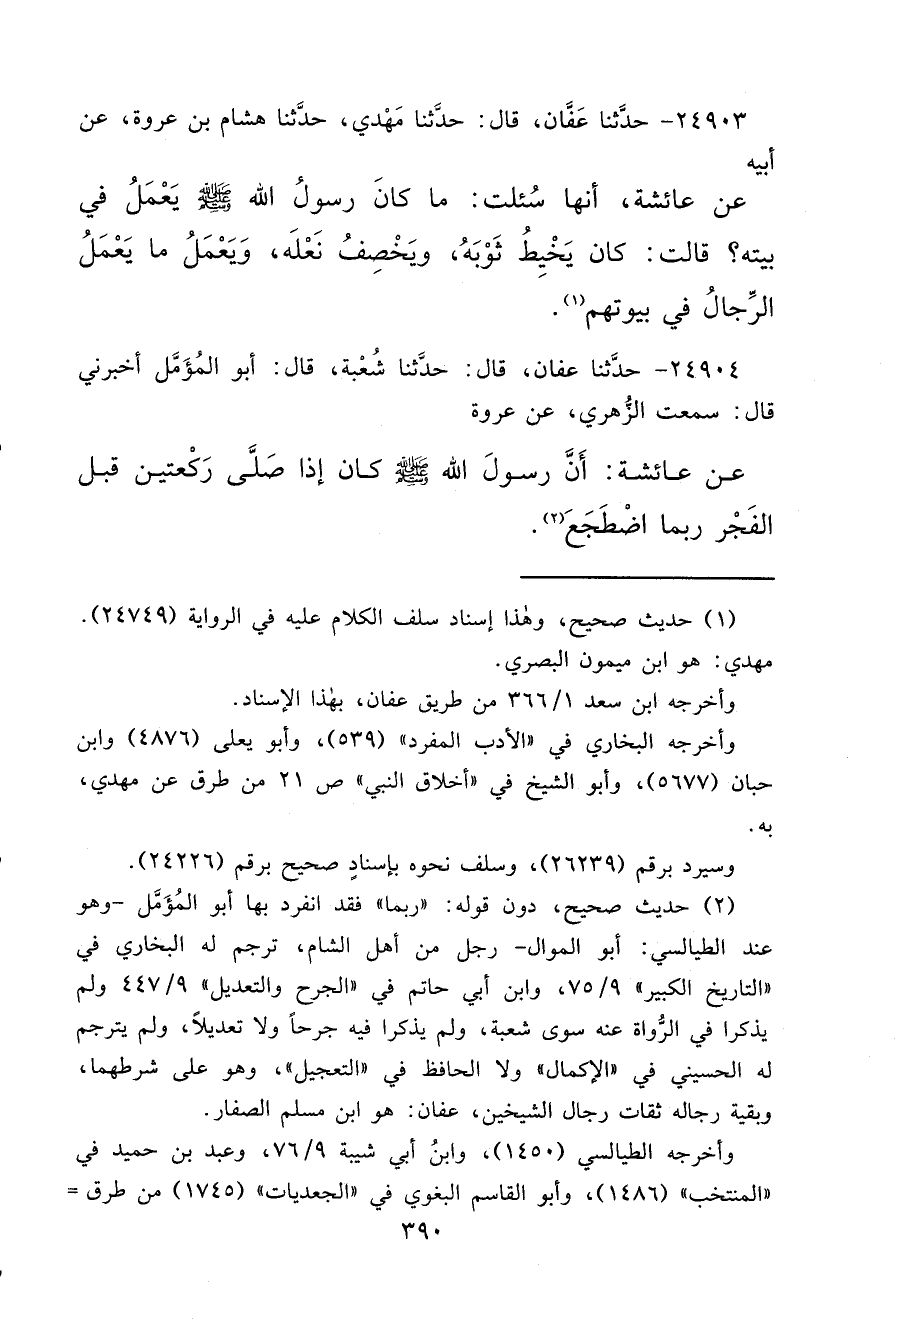 ٢٤٩٠٣- حدَّثنا عَفَّان، قال: حدَّثنا مَهْدي، حدَّثنا هشام بن عروة، عن
أبيه
عن عائشة، أنها سُئلت: ما كانَ رسولُ الله ﷺ يَعْمَلُ في
بيته؟ قالت: كان يَخْيِطُ ثوْبَهُ، ويَخْصِفُ نَعْلَه، وَيَعْمَلُ ما يَعْمَلُ
الرِّجالُ في بيوتهم(١).
٢٤٩٠٤- حدَّثنا عفان، قال: حدَّثنا شُعْبة، قال: أبو المُؤَمَّل أخبرني
قال: سمعت الزُّهري، عن عروة
عن عائشة: أَنَّ رسولَ الله ﷺ كان إذا صَلَّى رَكْعتين قبل
الفَجْر ربما اضْطَجَعَ(٢).
(١) حديث صحيح، وهٰذا إسناد سلف الكلام عليه في الرواية (٢٤٧٤٩).
مهدي: هو ابن ميمون البصري.
وأخرجه ابن سعد ٣٦٦/١ من طريق عفان، بهٰذا الإسناد.
وأخرجه البخاري في «الأدب المفرد» (٥٣٩)، وأبو يعلى (٤٨٧٦) وابن
حبان (٥٦٧٧)، وأبو الشيخ في «أخلاق النبي» ص ٢١ من طرق عن مهدي،
به.
وسيرد برقم (٢٦٢٣٩)، وسلف نحوه بإسنادٍ صحيح برقم (٢٤٢٢٦).
(٢) حديث صحيح، دون قوله: «ربما» فقد انفرد بها أبو المُؤَمَّل -وهو
عند الطيالسي: أبو الموال- رجل من أهل الشام، ترجم له البخاري في
«التاريخ الكبير» ٧٥/٩، وابن أبي حاتم في «الجرح والتعديل» ٤٤٧/٩ ولم
يذكرا في الرُّواة عنه سوى شعبة، ولم يذكرا فيه جرحاً ولا تعديلاً، ولم يترجم
له الحسيني في «الإكمال» ولا الحافظ في «التعجيل»، وهو على شرطهما،
وبقية رجاله ثقات رجال الشيخين، عفان: هو ابن مسلم الصفار.
وأخرجه الطيالسي (١٤٥٠)، وابنُ أبي شيبة ٧٦/٩، وعبد بن حميد في
«المنتخب» (١٤٨٦)، وأبو القاسم البغوي في «الجعديات» (١٧٤٥) من طرق =
٣٩٠